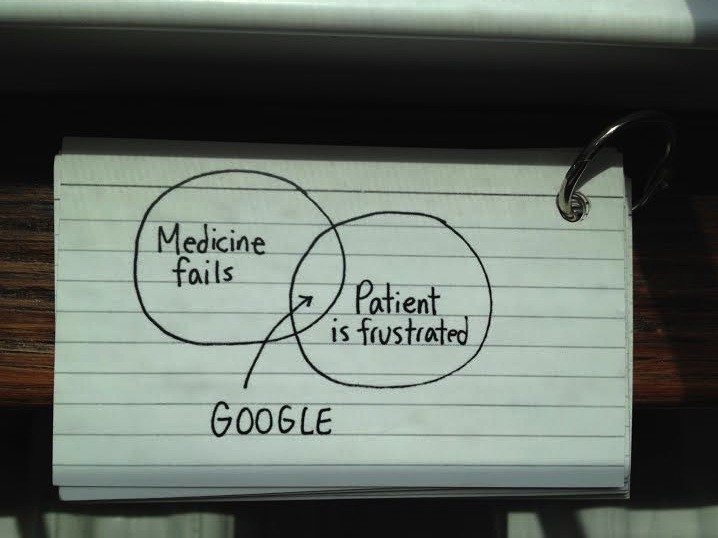 Medicine
fails
Patient
is frustrated
GOOGLE